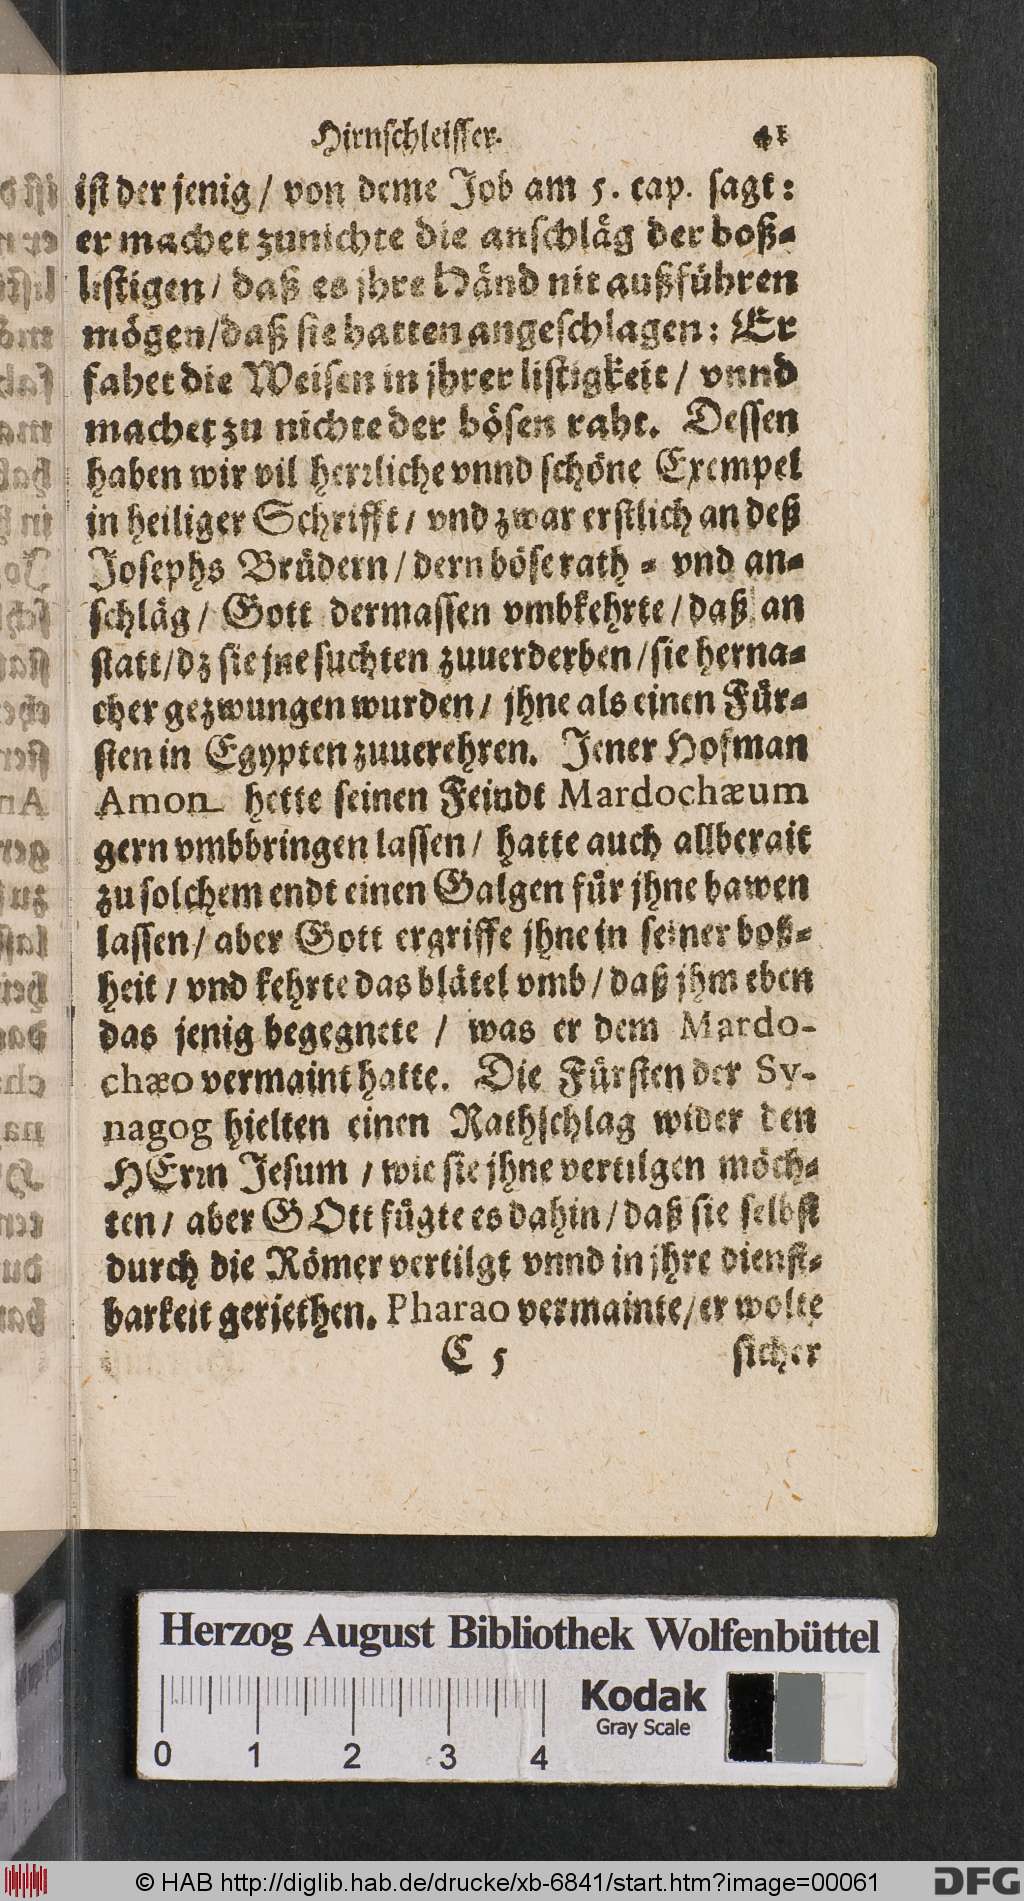 Hirnschleisser. 41
ist der jenig / von deme Job am 5. cap. sagt:
er machet zunichte die anschläg der boß-
listigen / daß es jhre Händ nit außführen
mögen / daß sie hatten angeschlagen: Er
fahet die Weisen in jhrer listigkeit / vnnd
machet zu nichte der bösen raht. Dessen
haben wir vil herꝛliche vnnd schöne Exempel
in heiliger Schrifft / vnd zwar erstlich an deß
Josephs Brüdern / dern böse rath - vnd an-
schläg / Gott dermassen vmbkehrte / daß an
statt / dz sie jne suchten zuuerderben / sie herna-
cher gezwungen wurden / jhne als einen Für-
sten in Egypten zuuerehren. Jener Hofman
Amon hette seinen Feindt Mardochæum
gern vmbbringen lassen / hatte auch allberait
zu solchem endt einen Galgen für jhne bawen
lassen / aber Gott ergriffe jhne in seiner boß-
heit / vnd kehrte das blätel vmb / daß jhm eben
das jenig begegnete / was er dem Mardo-
chæo vermaint hatte. Die Fürsten der Sy-
nagog hielten einen Rathschlag wider den
HErꝛn Jesum / wie sie jhne vertilgen möch-
ten / aber GOtt fügte es dahin / daß sie selbst
durch die Römer vertilgt vnnd in jhre dienst-
barkeit geriethen. Pharao vermainte / er wolte
C 5 sicher
Herzog August Bibliothek Wolfenbüttel
Kodak
Gray Scale
0 1 2 3 4
© HAB http://diglib.hab.de/drucke/xb-6841/start.htm?image=00061
DFG